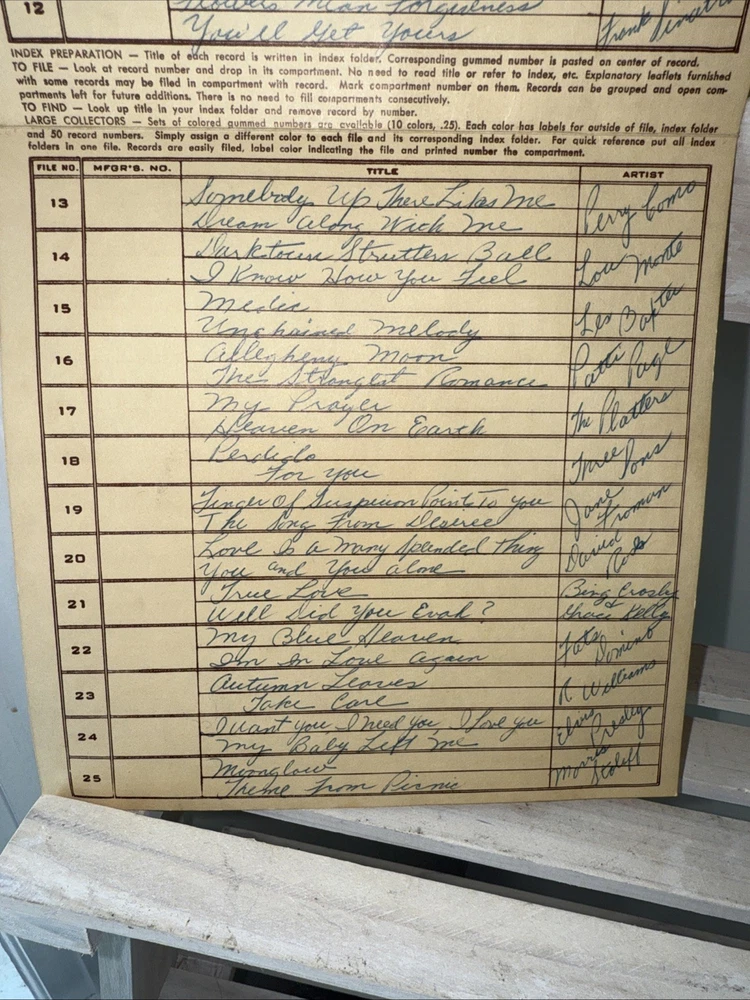 12
Flowers Mean Forgiveness
You'll Get Yours
Frank Sinatra
INDEX PREPARATION — Title of each record is written in index folder. Corresponding gummed number is pasted on center of record.
TO FILE — Look at record number and drop in its compartment. No need to read title or refer to index, etc. Explanatory leaflets furnished
with some records may be filed in compartment with record. Mark compartment number on them. Records can be grouped and open com-
partments left for future additions. There is no need to fill compartments consecutively.
TO FIND — Look up title in your index folder and remove record by number.
LARGE COLLECTORS — Sets of colored gummed numbers are available (10 colors, .25). Each color has labels for outside of file, index folder
and 50 record numbers. Simply assign a different color to each file and its corresponding index folder. For quick reference put all index
folders in one file. Records are easily filed, label color indicating the file and printed number the compartment.
FILE NO. MFGR'S. NO. TITLE ARTIST
13 Somebody Up There Likes Me
Dream Along With Me
Perry Como
14 Darktown Strutters Ball
I Know How You Feel
Lou Monte
15 Medic
Unchained Melody
Les Baxter
16 Allegheny Moon
The Strangest Romance
Patti Page
17 My Prayer
Heaven On Earth
The Platters
18 Perdido
For You
Three Sons
19 Finger Of Suspicion Points To You
The Song From Desiree
Jane Froman
20 Love Is a Many Splended Thing
You and You alone
David Rose
21 True Love
Well Did You Evah?
Bing Crosby
& Grace Kelly
22 My Blue Heaven
I'm In Love Again
Fats Domino
23 Autumn Leaves
Take Care
R Williams
24 I want you, I need you, I love you
My Baby Left Me
Elvis Presley
25 Moonglow
Theme From Picnic
Morris Stoloff